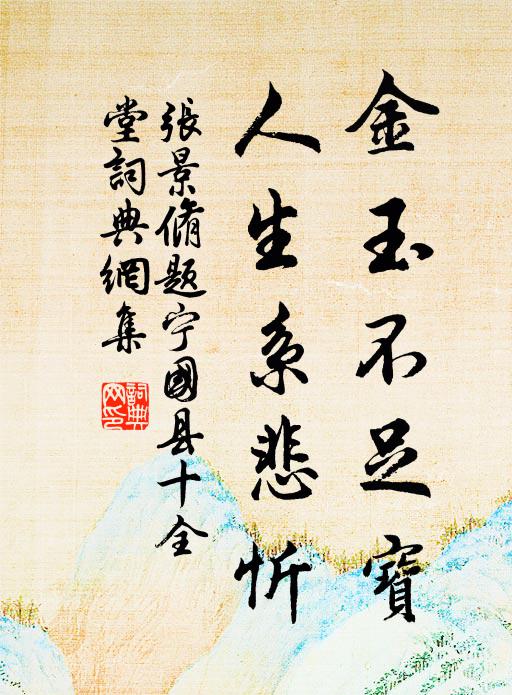 金玉不足寶
人生系悲忻
張景脩題宁國县十全
堂詞典網集
詞典
网印